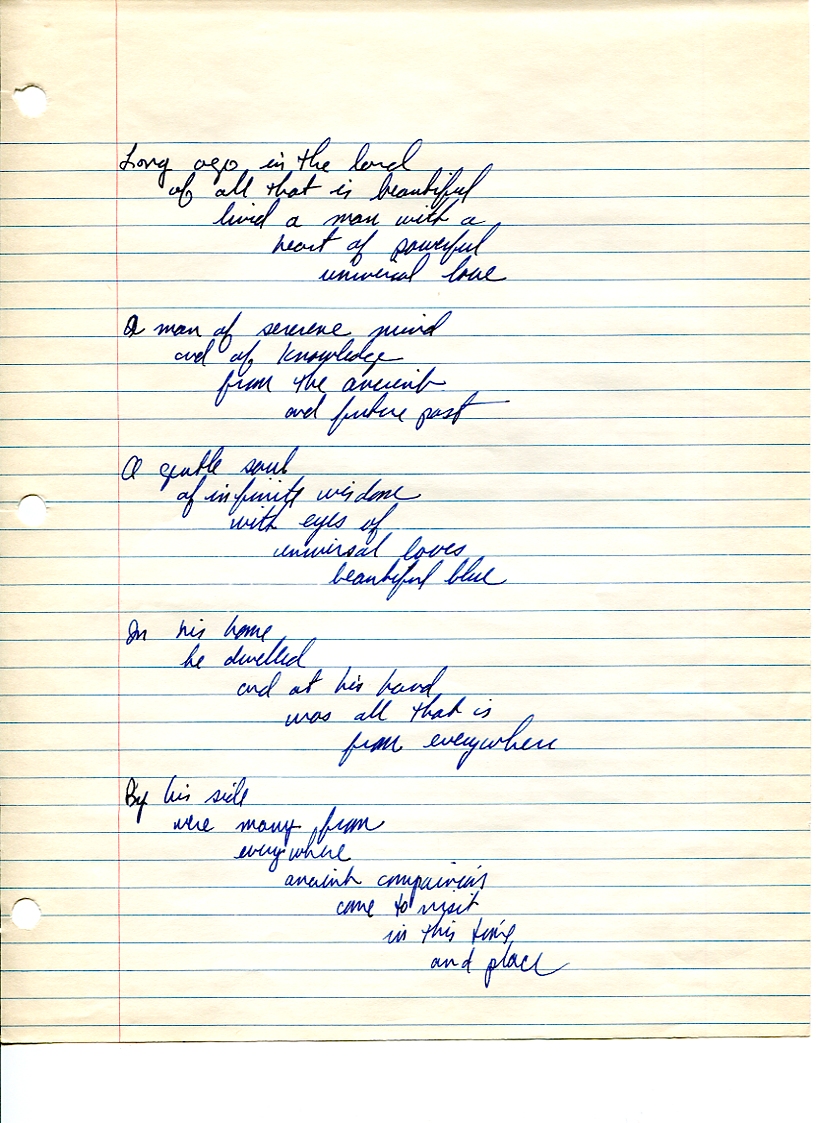 Long ago in the land
of all that is beautiful
lived a man with a
heart of powerful
universal love
A man of sererene mind
and of knowledge
from the ancient
and future past
A gentle soul
of infinite wisdom
with eyes of
universal loves
beautiful blue
In his home
he dwelled
and at his hand
was all that is
from everywhere
By his side
were many from
everywhere
ancient companions
come to visit
in this time
and place